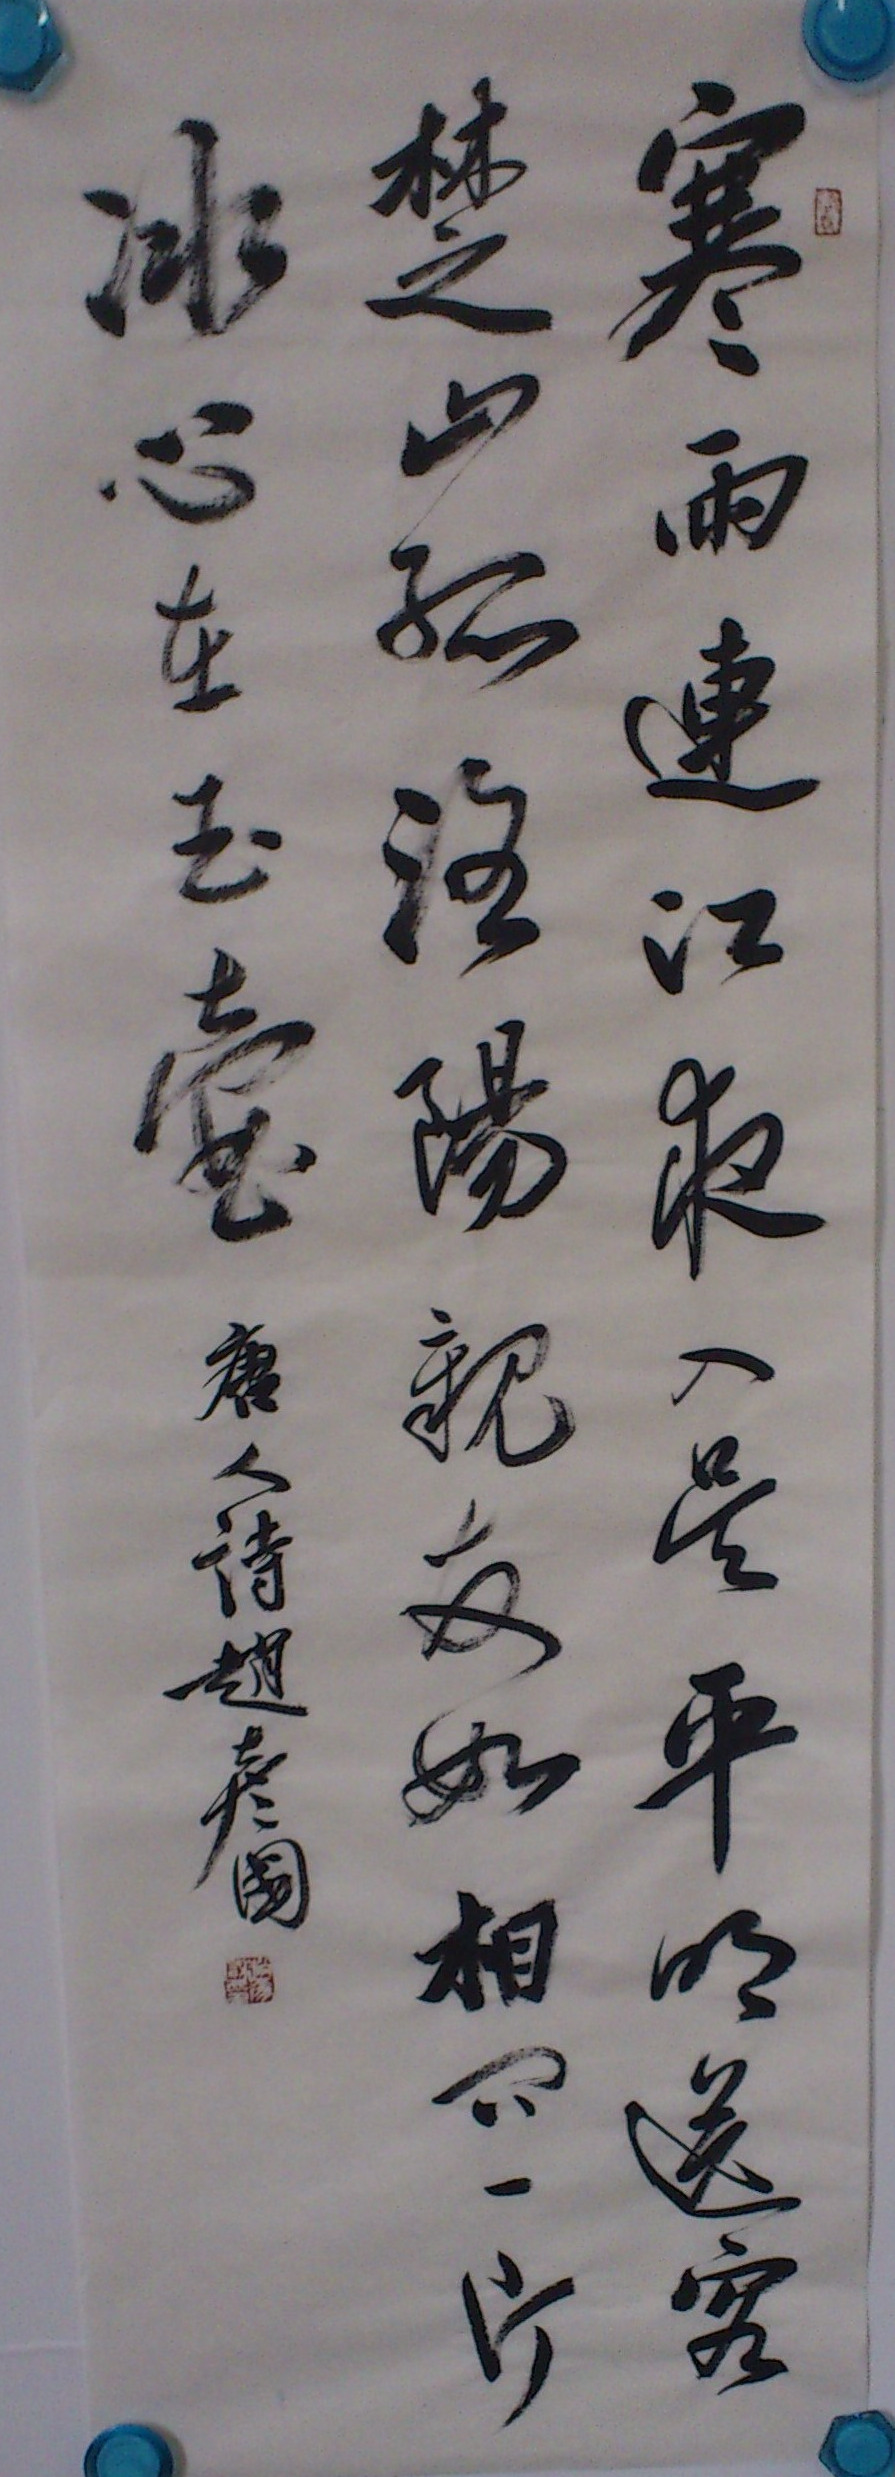 寒雨連江夜入吴平明送客
楚山孤洛陽親友如相问一片
冰心在玉壶唐人詩趙彦国